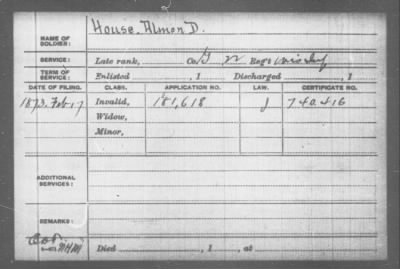 NAME OF SOLDIER: House, Almon D.
SERVICE: Late rank, Co. G 22 Reg't Wis Inf
TERM OF SERVICE: Enlisted , 1 Discharged , 1
DATE OF FILING. CLASS. APPLICATION NO. LAW. CERTIFICATE NO.
1873. Feb 17 Invalid, 181,618 740.416
Widow,
Minor,
ADDITIONAL SERVICES:
REMARKS:
Died , 1 , at